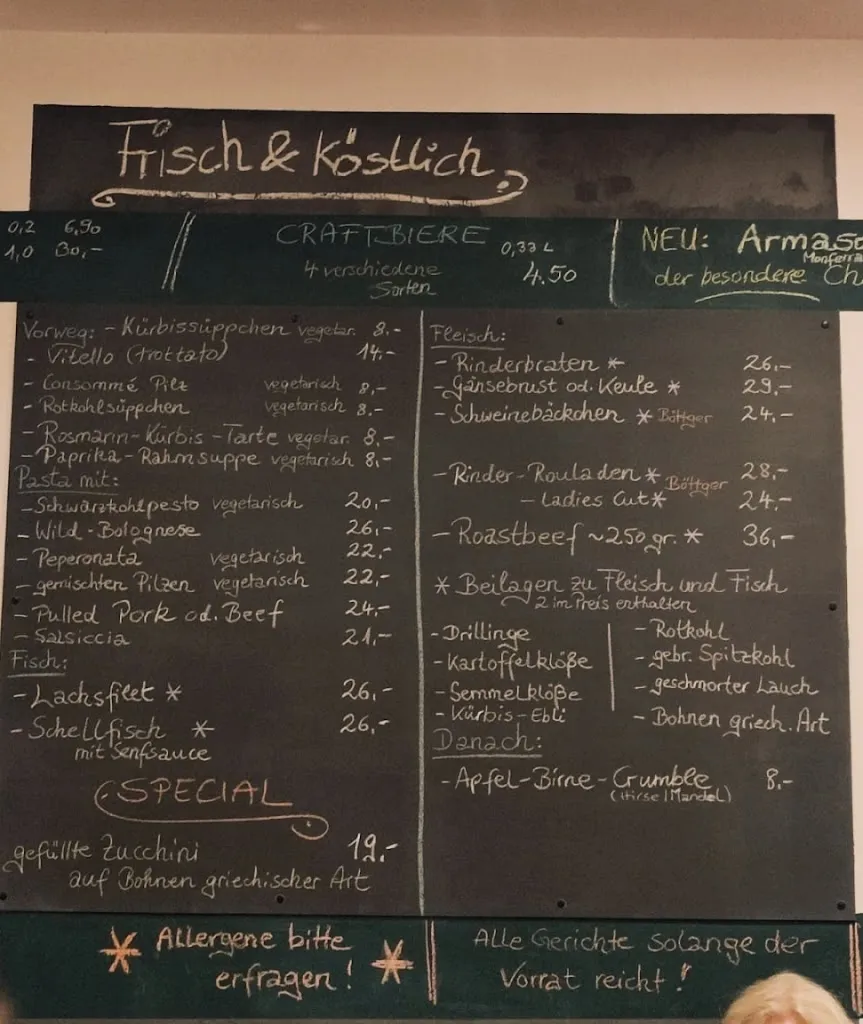 Frisch & Köstlich
0,2 6,90
1,0 30,-
CRAFTBIERE 0,33 L
4 verschiedene Sorten 4.50
NEU: Armas
Monferra
der besondere Ch
Vorweg: - Kürbissüppchen vegetar. 8.-
- Vitello (trottato) 14.-
- Consommé Pilz vegetarisch 8,-
- Rotkohlsüppchen vegetarisch 8.-
- Rosmarin-Kürbis-Tarte vegetar. 8.-
- Paprika-Rahmsuppe vegetarisch 8,-
Pasta mit:
- Schwarzkohlpesto vegetarisch 20,-
- Wild-Bolognese 26,-
- Peperonata vegetarisch 22,-
- gemischten Pilzen vegetarisch 22,-
- Pulled Pork od. Beef 24.-
- Salsiccia 21,-
Fisch:
- Lachsfilet * 26,-
- Schellfisch * 26,-
mit Senfsauce
SPECIAL
gefüllte Zucchini 19.-
auf Bohnen griechischer Art
Fleisch:
- Rinderbraten * 26,-
- Gänsebrust od. Keule * 29,-
- Schweinebäckchen * Böttger 24,-
- Rinder-Rouladen * Böttger 28,-
- Ladies Cut * 24.-
- Roastbeef ~250 gr. * 36,-
* Beilagen zu Fleisch und Fisch
2 im Preis enthalten
- Drillinge
- Kartoffelklöße
- Semmelklöße
- Kürbis-Ebli
- Rotkohl
- gebr. Spitzkohl
- geschmorter Lauch
- Bohnen griech. Art
Danach:
- Apfel-Birne-Crumble 8.-
(Hirse/Mandel)
* Allergene bitte
erfragen! *
Alle Gerichte solange der
Vorrat reicht!